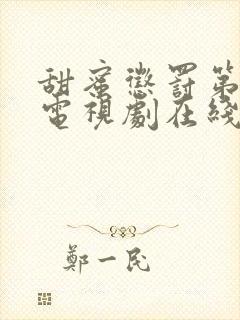 甜蜜懲罰第
電視劇在綫
鄭一民